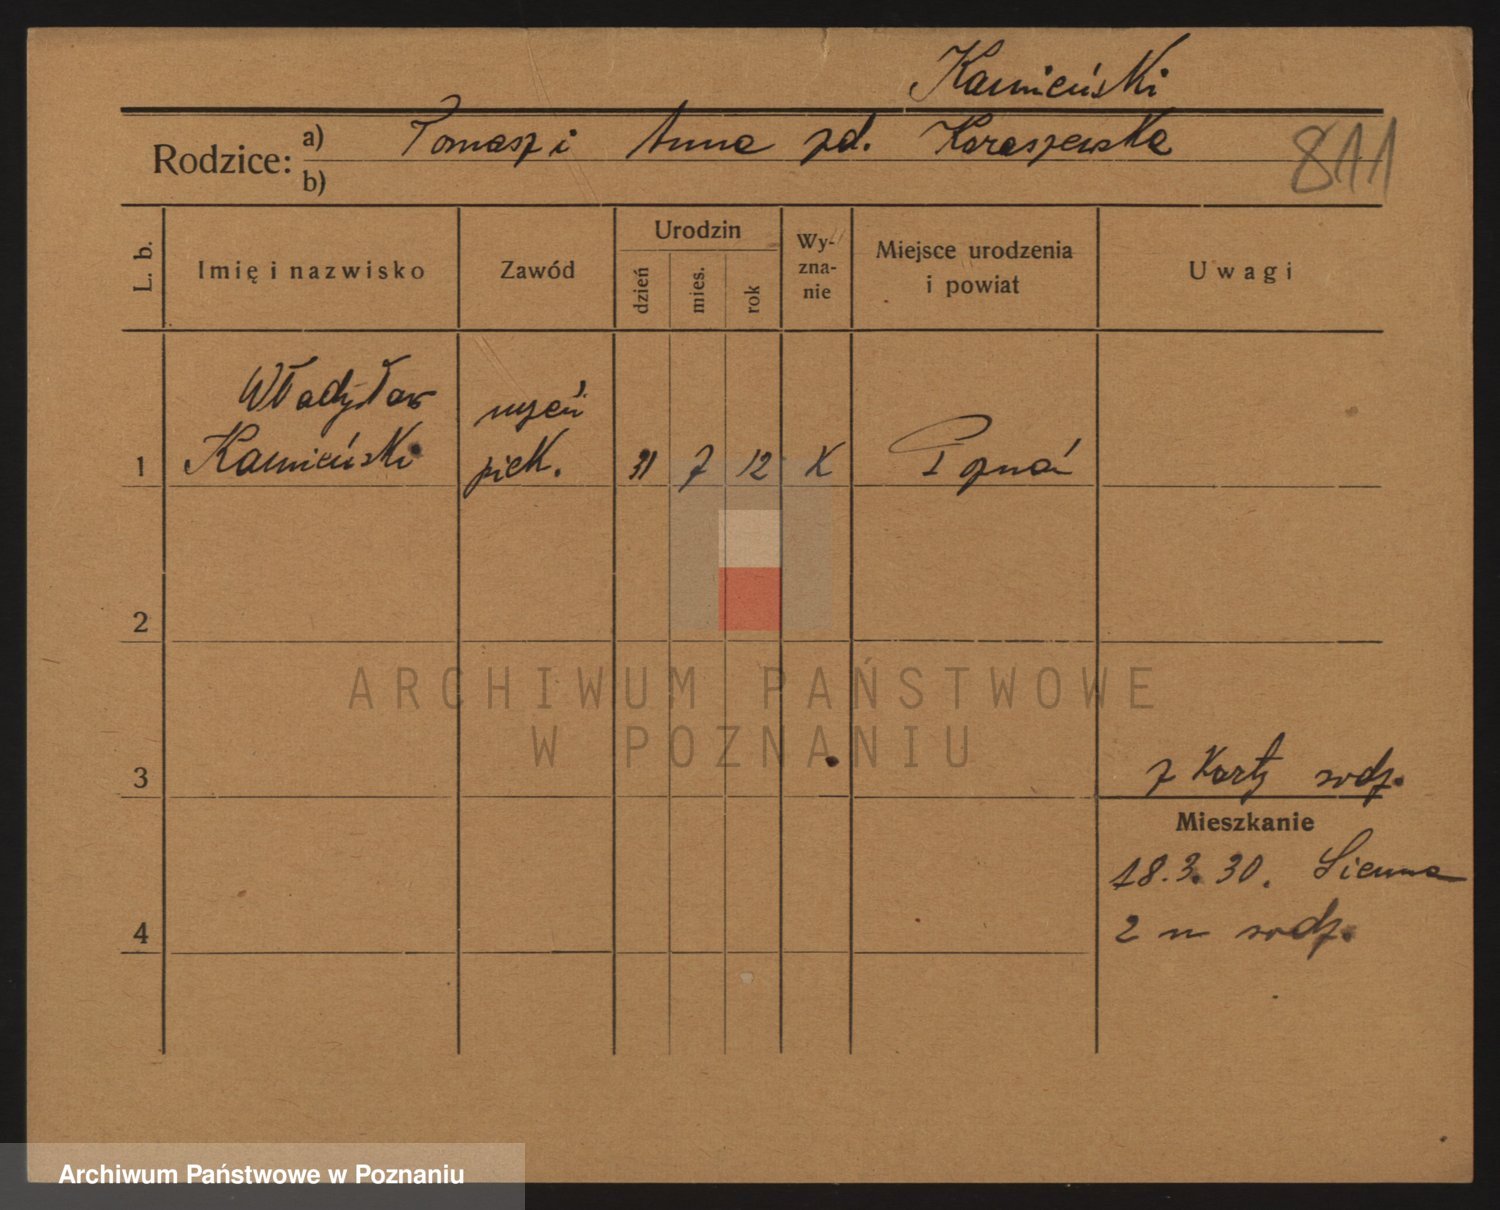 Kamieński
Rodzice: a) Tomasz i Anna zd. Karaszewska
b)
811
L. b.
Imię i nazwisko
Zawód
Urodzin
dzień
mies.
rok
Wy-
zna-
nie
Miejsce urodzenia
i powiat
Uwagi
Władysław uczeń
1 Kamieński piek. 31 7 12 K Poznań
2
ARCHIWUM PAŃSTWOWE
W POZNANIU
3 z karty rodz.
Mieszkanie
18.3.30. Sienna
4 2 u rodz.
Archiwum Państwowe w Poznaniu